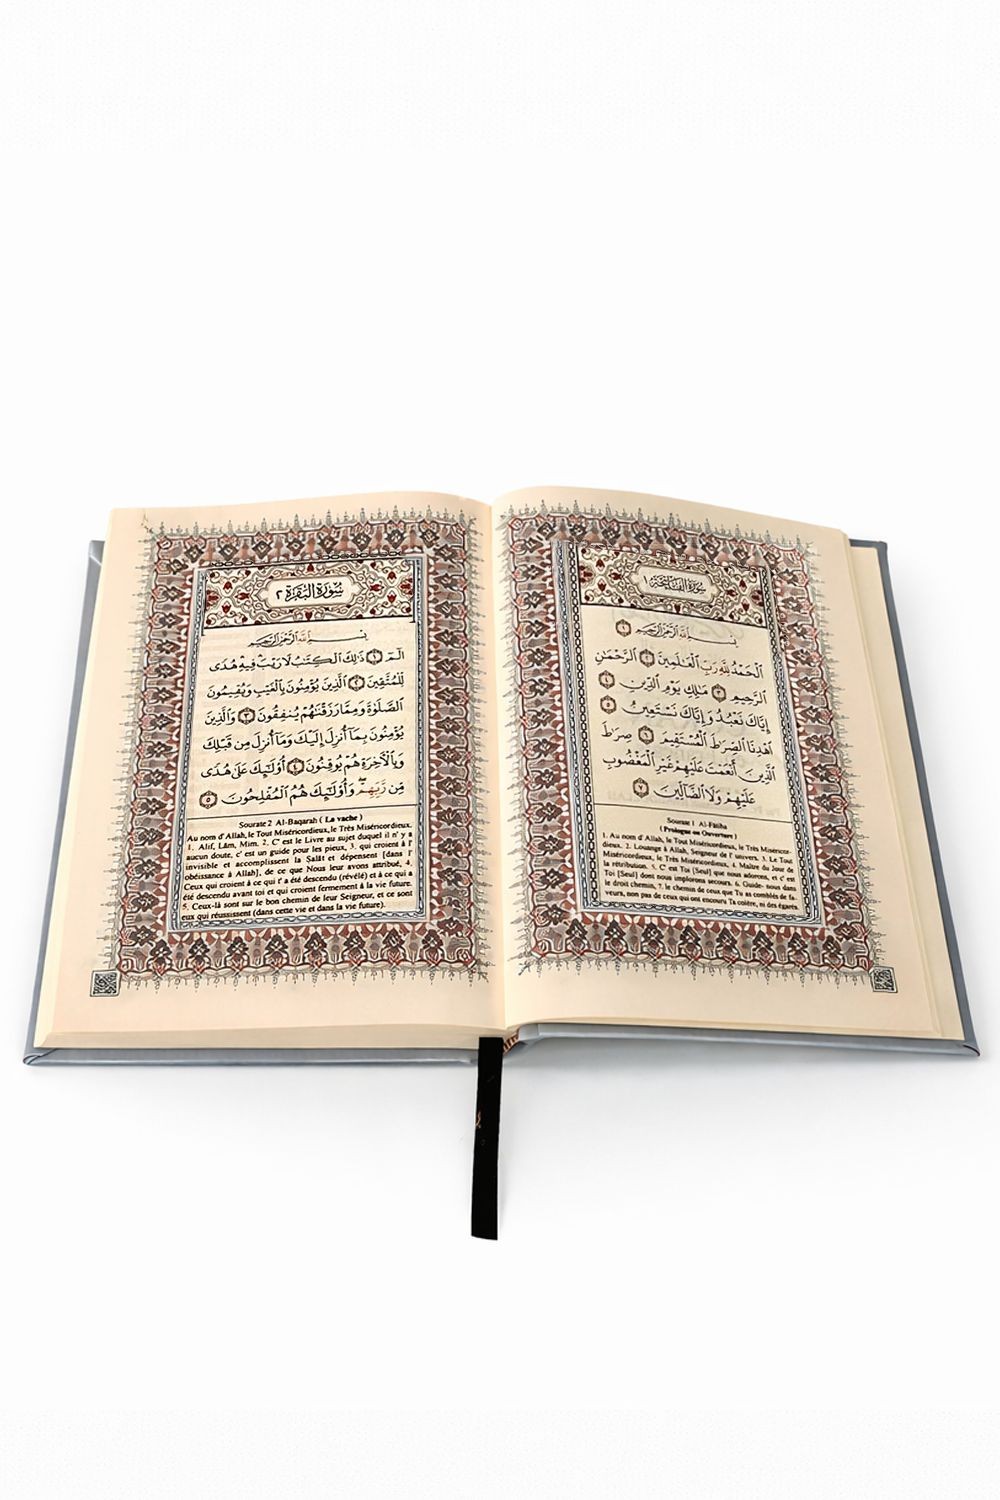 سُورَةُ الفَاتِحَة ١
بِسْمِ اللَّهِ الرَّحْمَٰنِ الرَّحِيمِ ١
الْحَمْدُ لِلَّهِ رَبِّ الْعَٰلَمِينَ ٢ الرَّحْمَٰنِ
الرَّحِيمِ ٣ مَٰلِكِ يَوْمِ الدِّينِ ٤
إِيَّاكَ نَعْبُدُ وَإِيَّاكَ نَسْتَعِينُ ٥
اهْدِنَا الصِّرَٰطَ الْمُسْتَقِيمَ ٦ صِرَٰطَ
الَّذِينَ أَنْعَمْتَ عَلَيْهِمْ غَيْرِ الْمَغْضُوبِ
عَلَيْهِمْ وَلَا الضَّالِّينَ ٧
Sourate 1 Al-Fâtiha
( Prologue ou Ouverture )
1. Au nom d'Allah, le Tout Miséricordieux, le Très Miséricor-
dieux. 2. Louange à Allah, Seigneur de l' univers. 3. Le Tout
Miséricordieux, le Très Miséricordieux, 4. Maître du Jour de
la rétribution. 5. C' est Toi [Seul] que nous adorons, et c' est
Toi [Seul] dont nous implorons secours. 6. Guide- nous dans
le droit chemin, 7. le chemin de ceux que Tu as comblés de fa-
veurs, non pas de ceux qui ont encouru Ta colère, ni des égarés.
سُورَةُ البَقَرَة ٢
بِسْمِ اللَّهِ الرَّحْمَٰنِ الرَّحِيمِ
الٓمٓ ١ ذَٰلِكَ الْكِتَٰبُ لَا رَيْبَ فِيهِ هُدًى
لِّلْمُتَّقِينَ ٢ الَّذِينَ يُؤْمِنُونَ بِالْغَيْبِ وَيُقِيمُونَ
الصَّلَوٰةَ وَمِمَّا رَزَقْنَٰهُمْ يُنفِقُونَ ٣ وَالَّذِينَ
يُؤْمِنُونَ بِمَا أُنزِلَ إِلَيْكَ وَمَا أُنزِلَ مِن قَبْلِكَ
وَبِالْآخِرَةِ هُمْ يُوقِنُونَ ٤ أُوْلَٰئِكَ عَلَىٰ هُدًى
مِّن رَّبِّهِمْ ۖ وَأُوْلَٰئِكَ هُمُ الْمُفْلِحُونَ ٥
Sourate 2 Al-Baqarah ( La vache )
Au nom d' Allah, le Tout Miséricordieux, le Très Miséricordieux.
1. Alif, Lâm, Mim. 2. C' est le Livre au sujet duquel il n' y a
aucun doute, c' est un guide pour les pieux, 3. qui croient à l'
invisible et accomplissent la Salât et dépensent [dans l'
obéissance à Allah], de ce que Nous leur avons attribué, 4.
Ceux qui croient à ce qui t' a été descendu (révélé) et à ce qui a
été descendu avant toi et qui croient fermement à la vie future.
5. Ceux-là sont sur le bon chemin de leur Seigneur, et ce sont
eux qui réussissent (dans cette vie et dans la vie future).